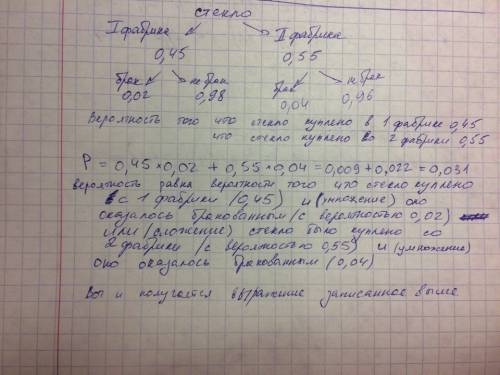 стекло
I фабрика II фабрика
0,45 0,55
брак не брак брак не брак
0,02 0,98 0,04 0,96
Вероятность того что стекло куплено в 1 фабрике 0,45
что стекло куплено со 2 фабрики 0,55
P = 0,45×0,02 + 0,55×0,04 = 0,009 + 0,022 = 0,031
вероятность равна вероятности того что стекло куплено
с 1 фабрики (0,45) и (умножение) оно
оказалось бракованным (с вероятностью 0,02)
или (сложение) стекло было куплено со
2 фабрики (с вероятностью 0,55) и (умножение)
оно оказалось бракованным (0,04)
Вот и получается выражение записанное выше